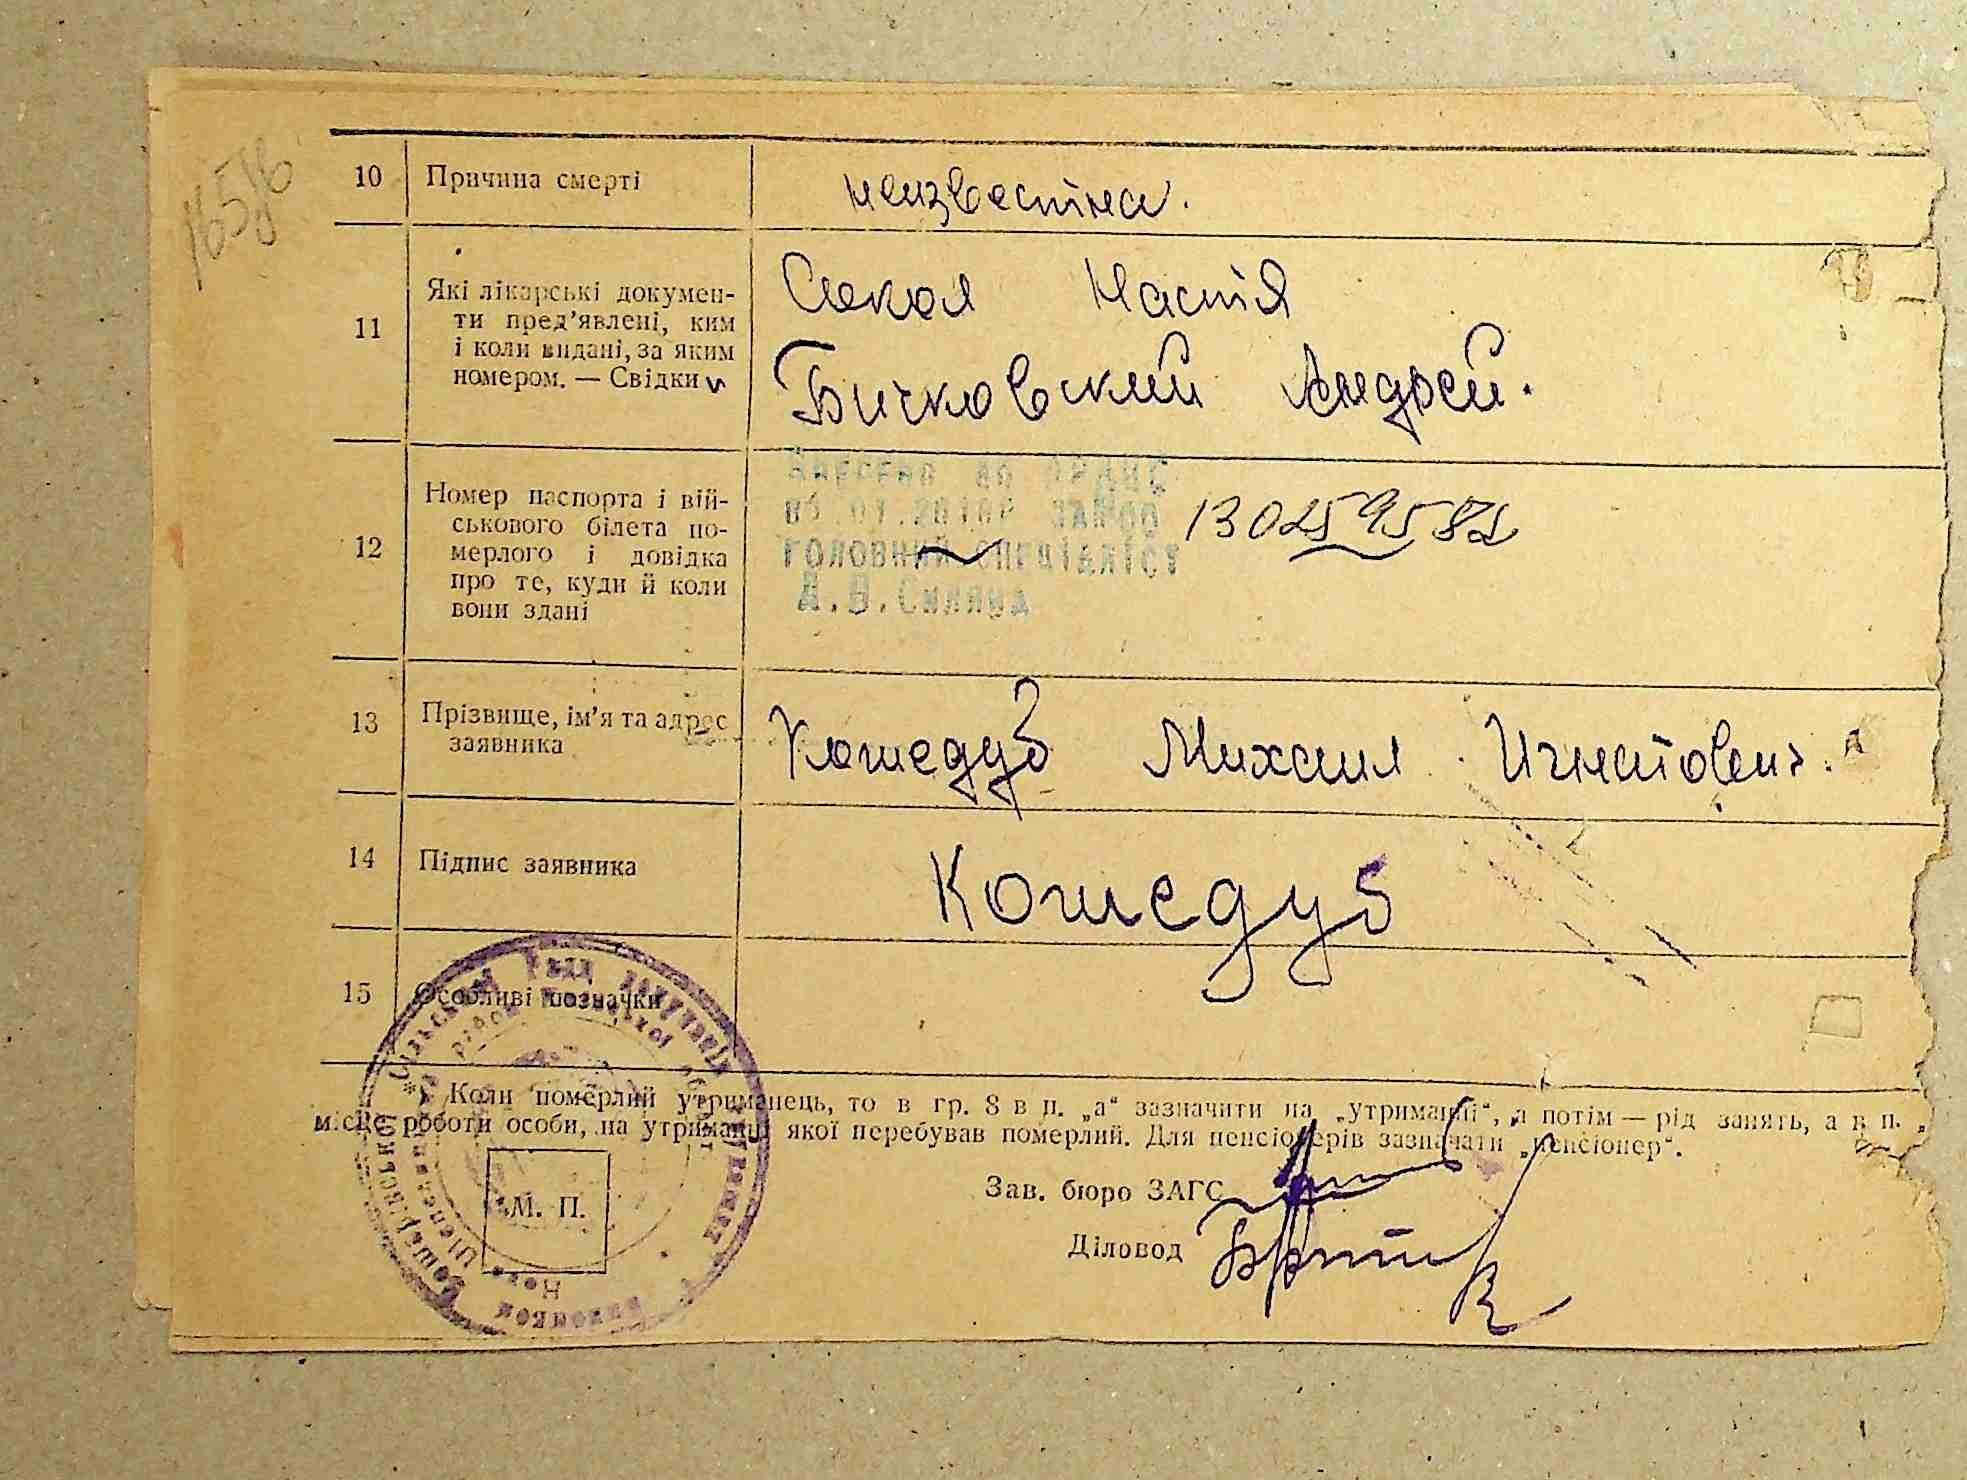 10 Причина смерті
неизвестна.
11 Які лікарські докумен-
ти пред'явлені, ким
і коли видані, за яким
номером. — Свідки
Сокол Настя
Бичковский Андрей.
12 Номер паспорта і вій-
ськового білета по-
мерлого і довідка
про те, куди й коли
вони здані
Внесено до
головний спеціаліст
13 Прізвище, ім'я та адрес
заявника
Кошедуб Михаил Игнатович.
14 Підпис заявника
Кошедуб
15 Особливі позначки
Коли померлий утриманець, то в гр. 8 в п. „а“ зазначити на „утриманні“, а потім — рід занять, а в п. „
місце роботи особи, на утриманні якої перебував померлий. Для пенсіонерів зазначати „пенсіонер“.
Зав. бюро ЗАГС
Діловод
М. П.